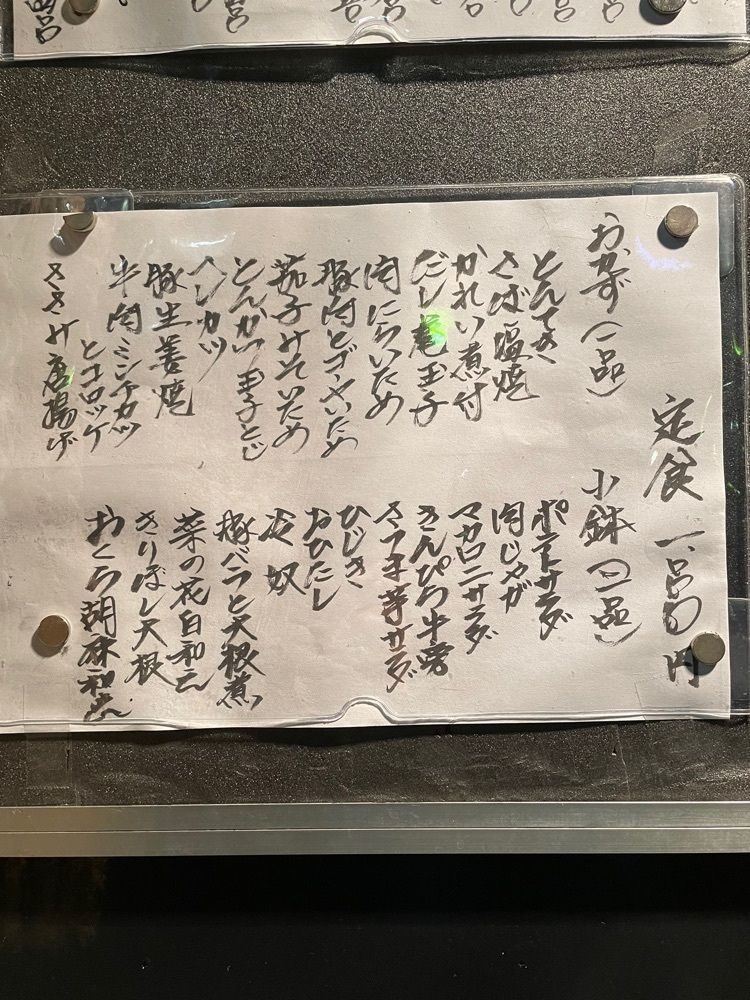 定食 一、呂〇円
おかず(一品)
とんてき
さば塩焼
かれい煮付
だし巻玉子
肉にらいため
豚肉とゴーヤいため
茄子みそいため
とんかつ玉子とじ
ヘレカツ
豚生姜焼
牛肉ミンチカツ
とコロッケ
ささみ唐揚げ
小鉢(二品)
ポテトサラダ
肉じゃが
マカロニサラダ
きんぴら牛蒡
さつま芋サラダ
ひじき
おひたし
冷奴
豚バラと大根煮
菜の花白和え
きりぼし大根
おくら胡麻和え